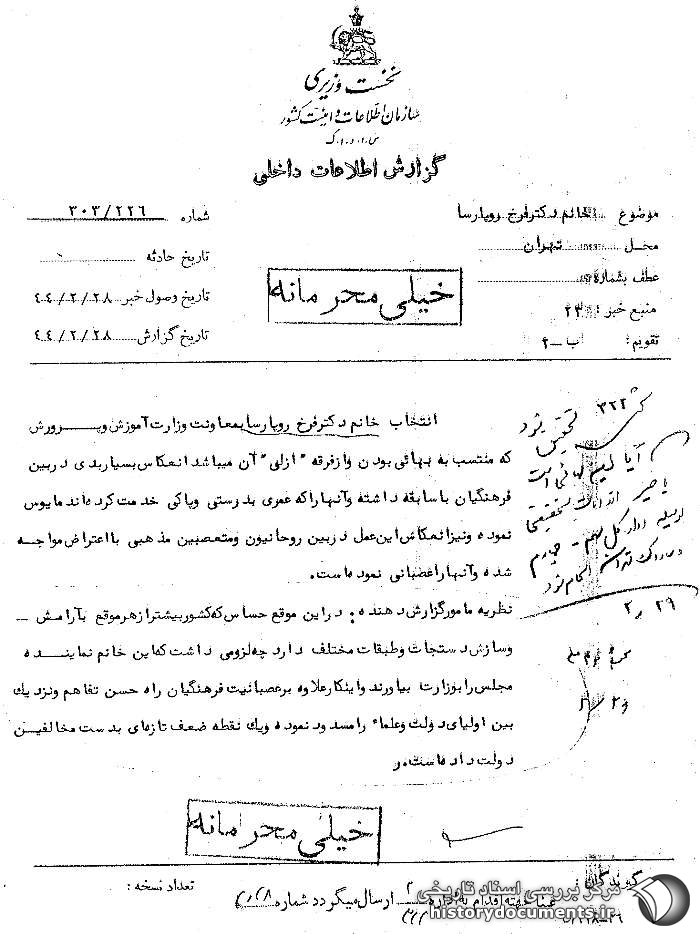 نخست وزیری
سازمان اطلاعات و امنیت کشور
س.ا.و.ا.ک
گزارش اطلاعات داخلی
موضوع خانم دکتر فرخ روپارسا
محل تهران
عطف بشماره
منبع خبر: ۲۳
تقویم: ب-۲
شماره ۳۰۳/۲۲۶
تاریخ حادثه
تاریخ وصول خبر ۴۴/۲/۲۸
تاریخ گزارش ۴۴/۲/۲۸
خیلی محرمانه
انتخاب خانم دکتر فرخ روپارسا بمعاونت وزارت آموزش و پـرورش
که منتسب به بهائی بودن و از فرقه "ازلی" آن میباشد انعکاس بسیار بدی در بین
فرهنگیان با سابقه داشته و آنها را که عمری بدرستی و پاکی خدمت کرده اند مایوس
نموده و نیز انعکاس این عمل در بین روحانیون و متعصبین مذهبی با اعتراض مواجـه
شده و آنها را عصبانی نموده است.
نظریه مامور گزارش دهنده: در این موقع حساس که کشور بیشتر از هر موقع بآرامش -
و سازش دستجات و طبقات مختلف دارد چه لزومی داشت که این خانم نماینـده
مجلس را بوزارت بیاورند و اینکار علاوه بر عصبانیت فرهنگیان راه حسن تفاهم و نزدیك
بین اولیای دولت و علماء را مسدود نموده و یك نقطه ضعف تازه ای بدست مخالفیـن
دولت داده است.
۳۲۲
تحقیق شود
آیا ایشان بهائی است
یا خیر
۲۹ر۲
خیلی محرمانه
گیرندگان:
جهت اقدام به اداره ارسال میگردد شماره
تعداد نسخه:
مرکز بررسی اسناد تاریخی
historydocuments.ir